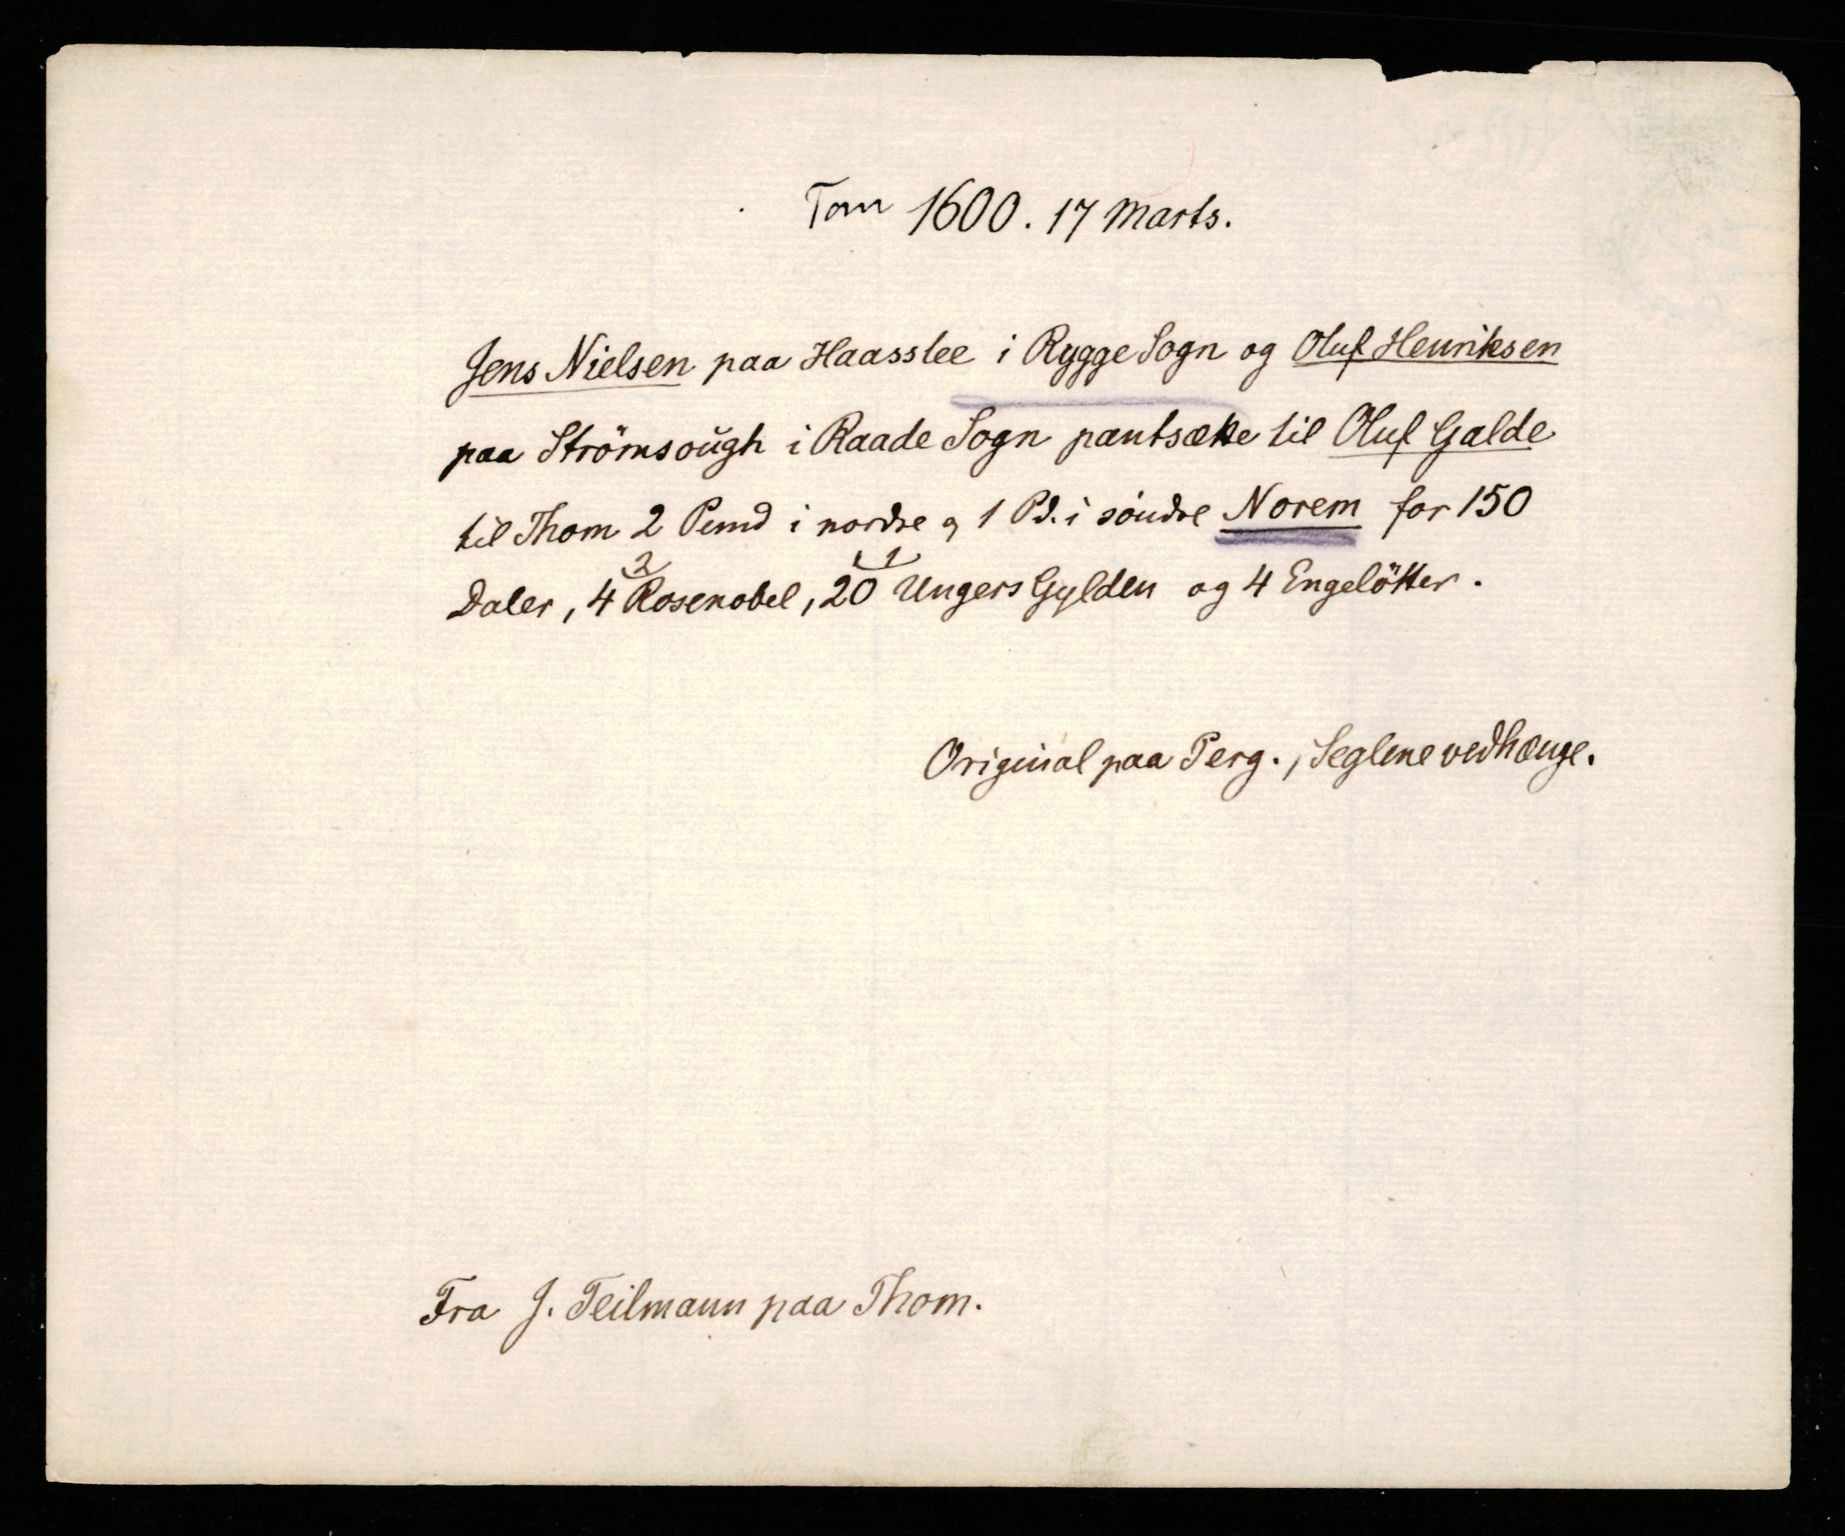 Tom 1600. 17 Marts.
Jens Nielsen paa Haasslee i Rygge Sogn og Oluf Henriksen
paa Strömsough i Raade Sogn pantsætte til Oluf Galde
til Thom 2 Pund i nordre og 1 Pd. i söndre Norem for 150
2 1
Daler, 4 Rosenobel, 20 Ungers Gylden og 4 Engelötter.
Original paa Perg., Seglene vedhænge.
Fra J. Teilmann paa Thom.